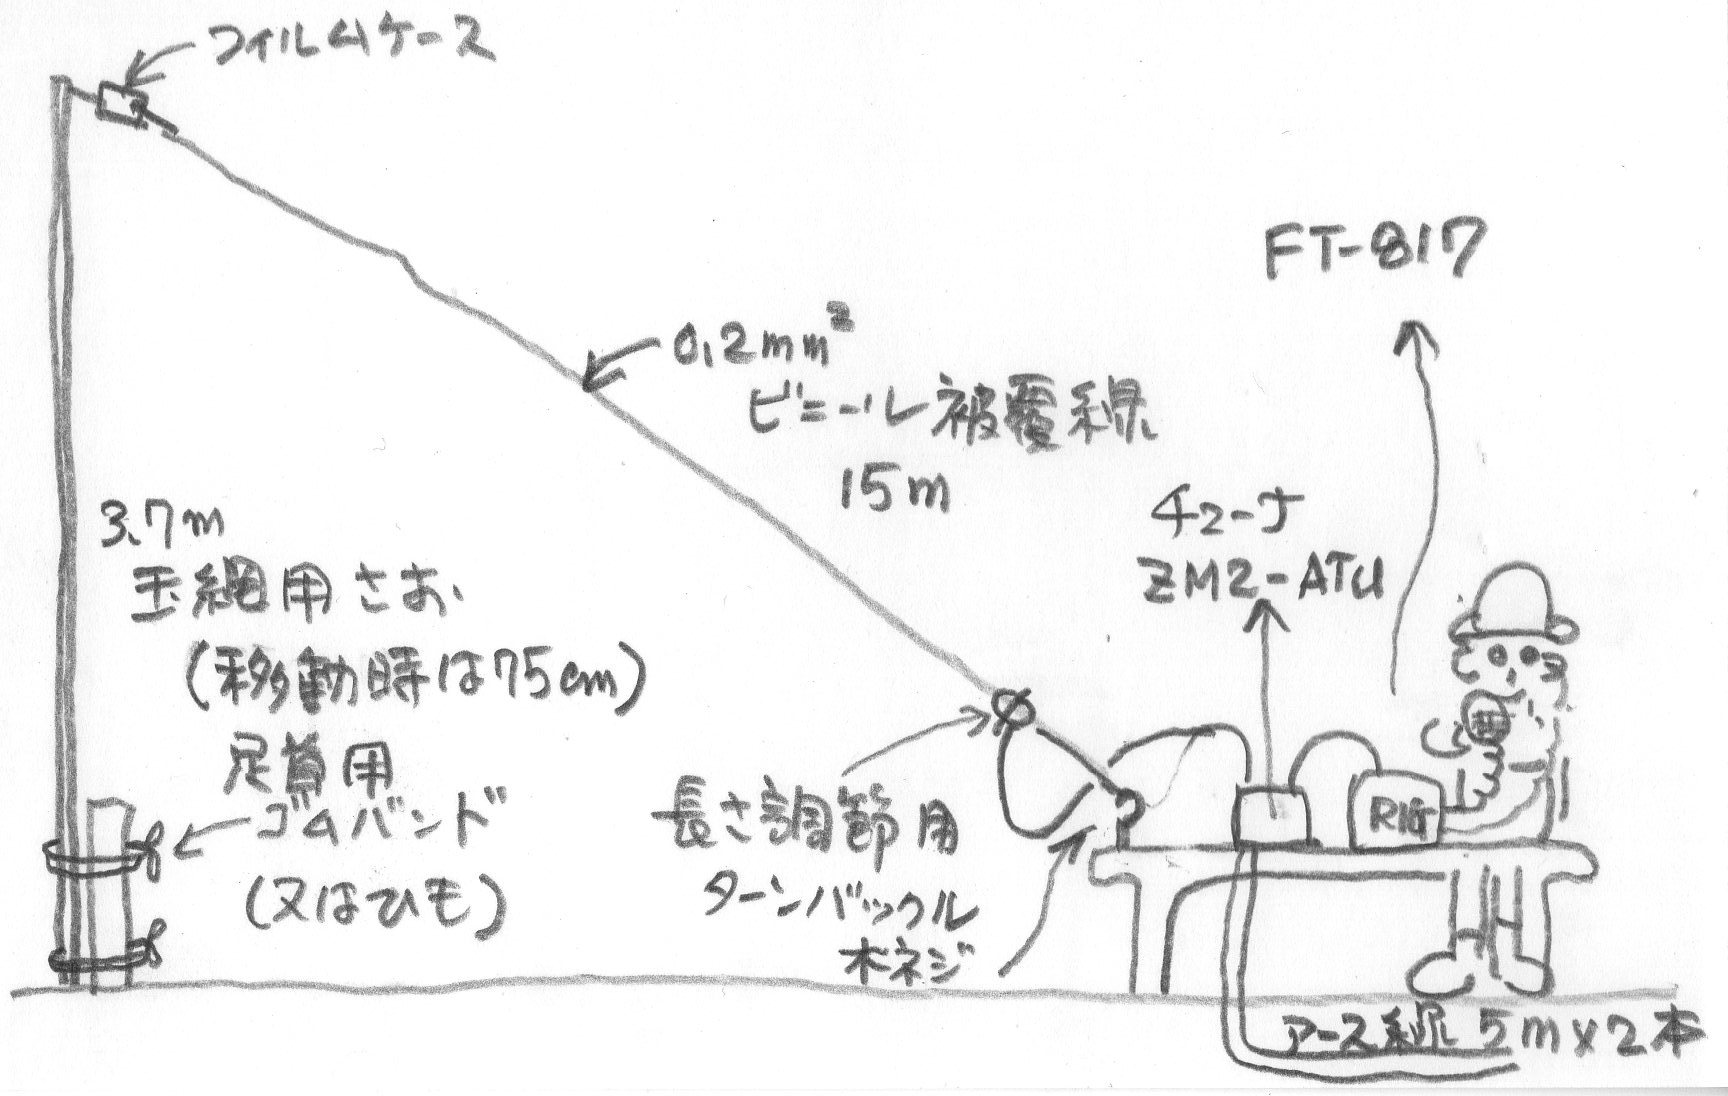 フィルムケース
FT-817
0.2mm²
ビニール被覆線
15m
チューナ
ZM2-ATU
3.7m
玉網用さお
(移動時は75cm)
荷造用
ゴムバンド
(又はひも)
長さ調節用
ターンバックル
木ネジ
RIG
アース線 5m×2本